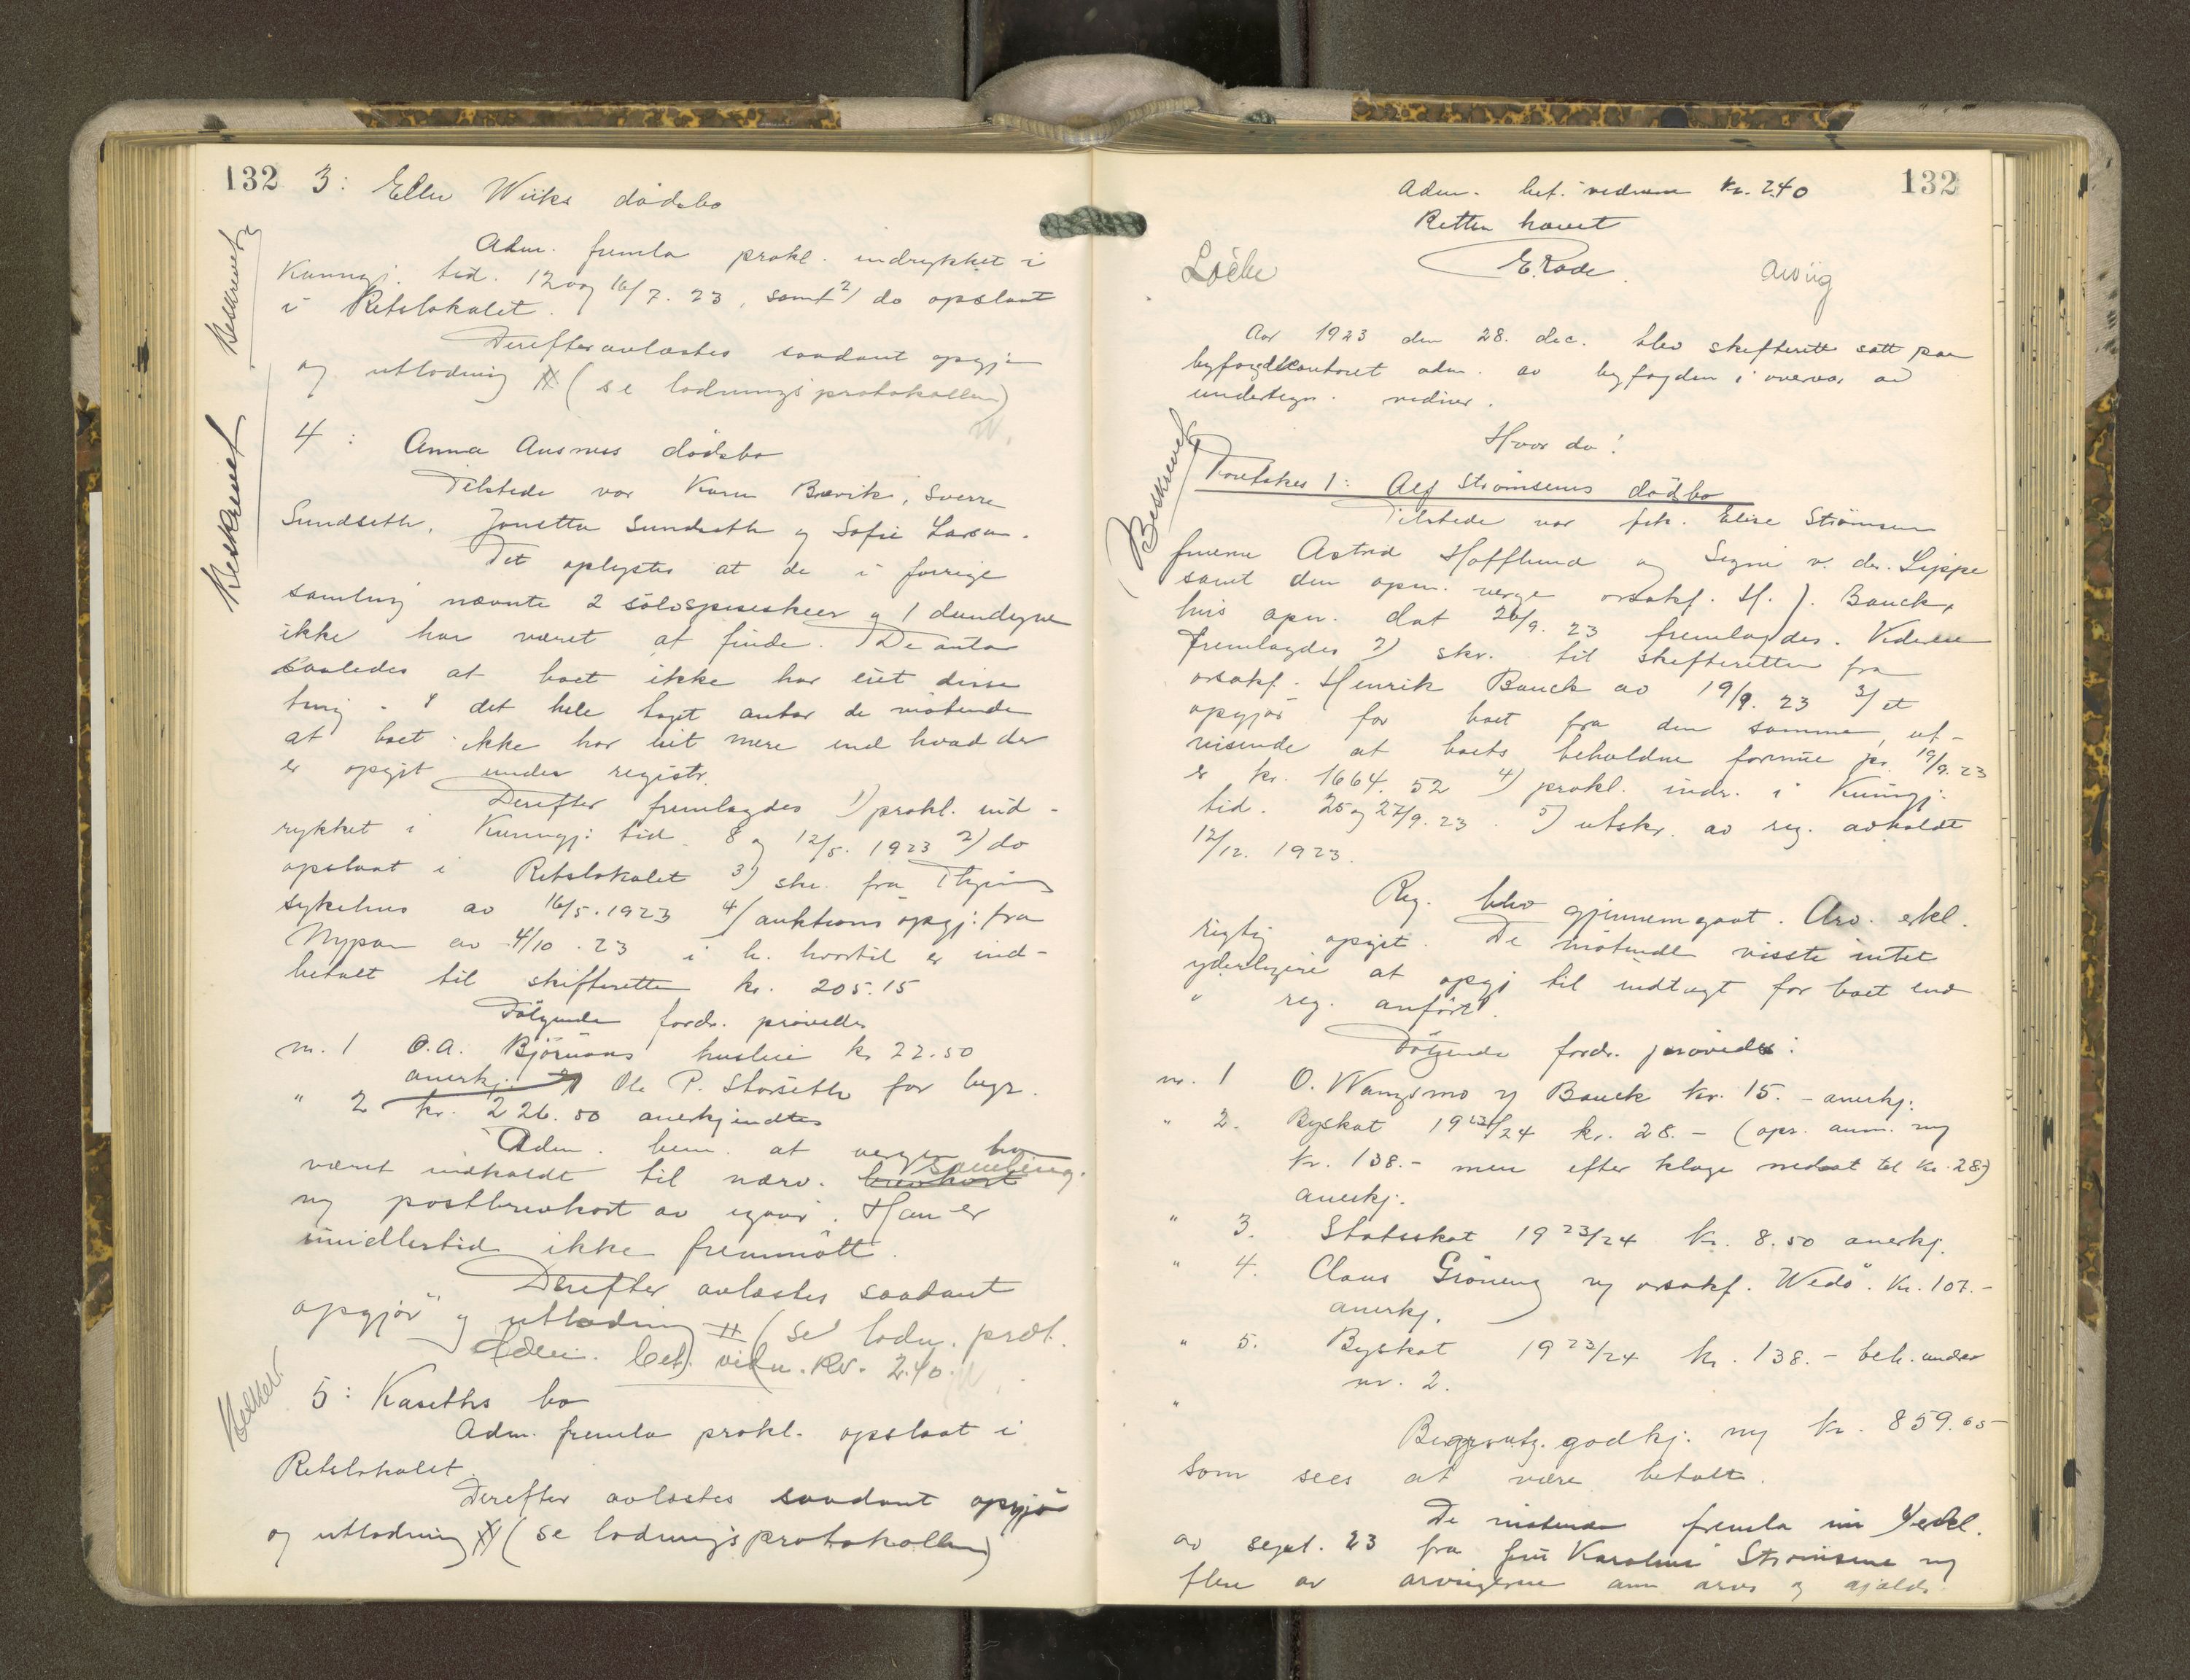 132 3: Ellen Wiiks dödsbo
Beskrevet
Adm. fremla prokl. indrykket i
Kunngj. tid. 12 og 16/7. 23, samt 2) do opslaat
i Retslokalet.
Derefter avlæstes saadant opgjör
og utlodning # (se lodningsprotokollen)
Beskrevet
4: Anna Ausness dödsbo
Tilstede var Karen Bævik, Sverre
Sundseth, Jonetta Sundseth og Sofie Larsen.
Det oplystes at de i forrige
samling nævnte 2 sölvspiseskeer og 1 dundyne
ikke har været at finde. De antar
saaledes at boet ikke har eiet disse
ting. I det hele taget antar de mötende
at boet ikke har eiet mere end hvad der
er opgit under registr.
Derefter fremlagdes 1) prokl. ind-
rykket i Kunngj: tid. 8 og 12/5. 1923 2) do
opslaat i Retslokalet 3) skr. fra
sykehus av 16/5. 1923 4) auktions opgj: fra
Nypan av 4/10. 23 i h. hvortil er ind-
betalt til skifteretten kr. 205.15
Fölgende fordr. prövedes
nr. 1 O.A. Björnaas husleie kr 22.50
anerkj.
" 2 Ole P. Storseth for begr.
kr. 226.50 anerkjendtes
Adm. bem. at vergen har
været indkaldt til nærv. brevkort samling.
ved postbrevkort av igaar. Han er
imidlertid ikke fremmött.
Derefter avlæstes saadant
opgjör og utlodning # (Se lodn. prot.
Adm. bet. vidn. Kr. 2.40.
Beskrev.
5: Kaseths bo
Adm. fremla prokl. opslaat i
Retslokalet
Derefter avlæstes saadant opgjör
og utlodning # (se lodningsprotokollen)
132
Adm. bet. vidnene kr. 2.40
Retten hævet
E. Rode.
Löcke
Arvig
Aar 1923 den 28. dec. blev skifterett satt paa
byfogdkontoret adm. av byfogden i overvær av
undertegn. vidner.
Hvor da!
Beskrevet
Foretokes 1: Alf Strömsens dödsbo
Tilstede var frk. Elise Strömsen
fruerne Astrid Hofflund og Signe v. der. Lippe
samt den opn. verge orsakf. H. J. Bauck,
hvis opn. dat 26/9. 23 fremlagdes. Videre
fremlagdes 2) skr. til skifteretten fra
orsakf. Henrik Bauck av 19/9. 23 3) et
opgjör for boet fra den samme, ut-
visende at boets beholdne formue pr. 19/9. 23
er kr. 1664.52 4) prokl. indr. i Kunngj.
tid. 25 og 27/9. 23. 5) utskr. av reg. avholdt
12/12. 1923.
Reg. blev gjennemgaat. Arv. erkl.
rigtig opgit. De mötende visste intet
yderligere at opgi til indtægt for boet end
i reg. anfört.
Fölgende fordr. prövedes:
nr. 1 O. Wangsmo v/ Bauck kr. 15.- anerkj:
" 2. Byskat 1923/24 kr. 28.- (opr. anm. m/
kr. 138.- men efter klage nedsat til kr. 28.-)
anerkj.
" 3. Statsskat 1923/24 kr. 8.50 anerkj.
" 4. Claus Gröneng v/ orsakf. Wedö. Kr. 107.-
anerkj.
" 5. Byskat 1923/24 kr. 138.- beh. under
nr. 2.
"
Begr.utg. godkj. m/ kr. 859.65
som sees at være betalt.
De mötende fremla en erkl.
av sept. 23 fra fru Karoline Strömsen m/
flere av arvingerne om arv og gjælds